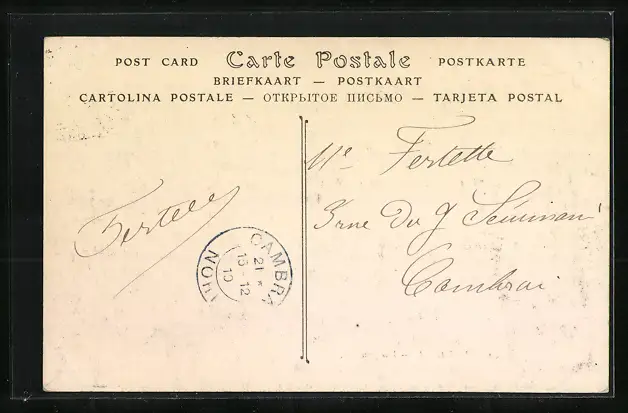 POST CARD Carte Postale POSTKARTE
BRIEFKAART — POSTKAART
CARTOLINA POSTALE — ОТКРЫТОЕ ПИСЬМО — TARJETA POSTAL
Me Fertelle
3 rue Du Gd Séminaire
Cambrai
Fertelle
CAMBRAI
21 *
15-12
10
NORD